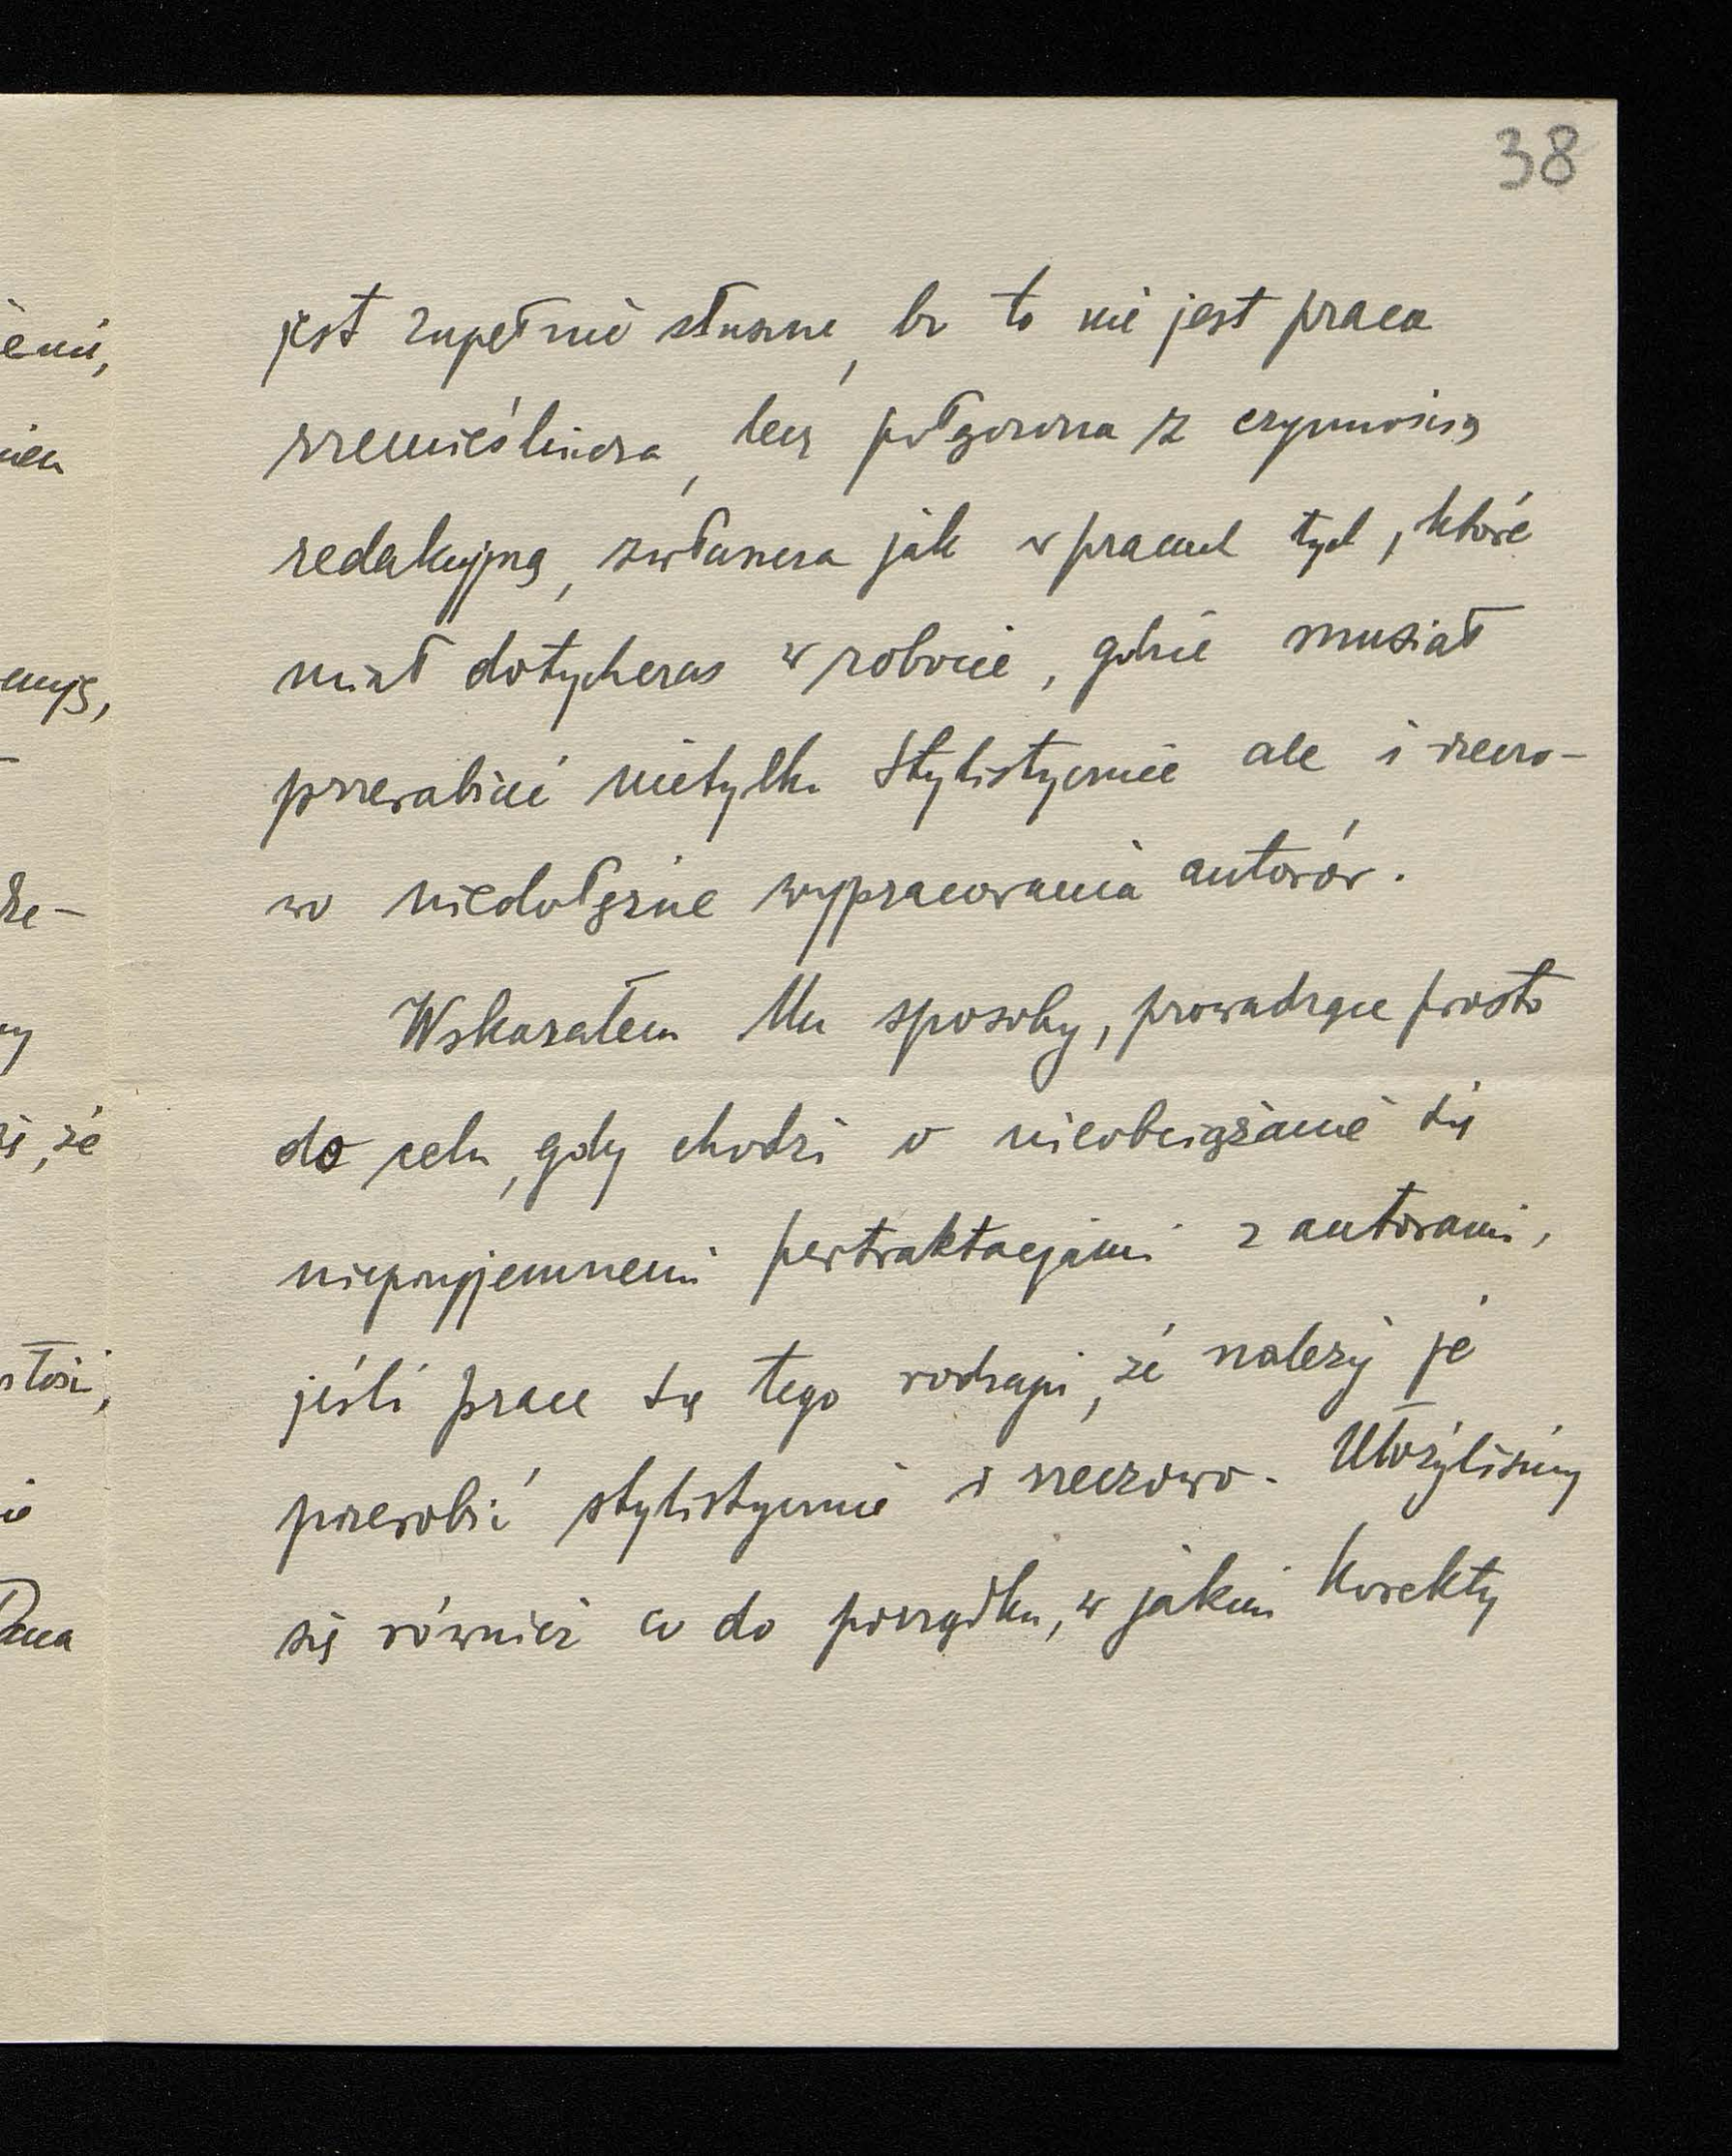 38
jest zupełnie słuszne, bo to nie jest praca
rzemieślnicza, lecz połączona z czynnością
redakcyjną, zwłaszcza jak w pracach tych, które
miał dotychczas w robocie, gdzie musiał
przerabiać nietylko stylistycznie ale i rzeczo-
wo niedołężne wypracowania autorów.
Wskazałem Mu sposoby, prowadzące prosto
do celu, gdy chodzi o nieobciążanie się
nieprzyjemnemi pertraktacjami z autorami,
jeśli prace są tego rodzaju, że należy je
przerobić stylistycznie i rzeczowo. Ułożyliśmy
się również co do porządku, w jakim korekty